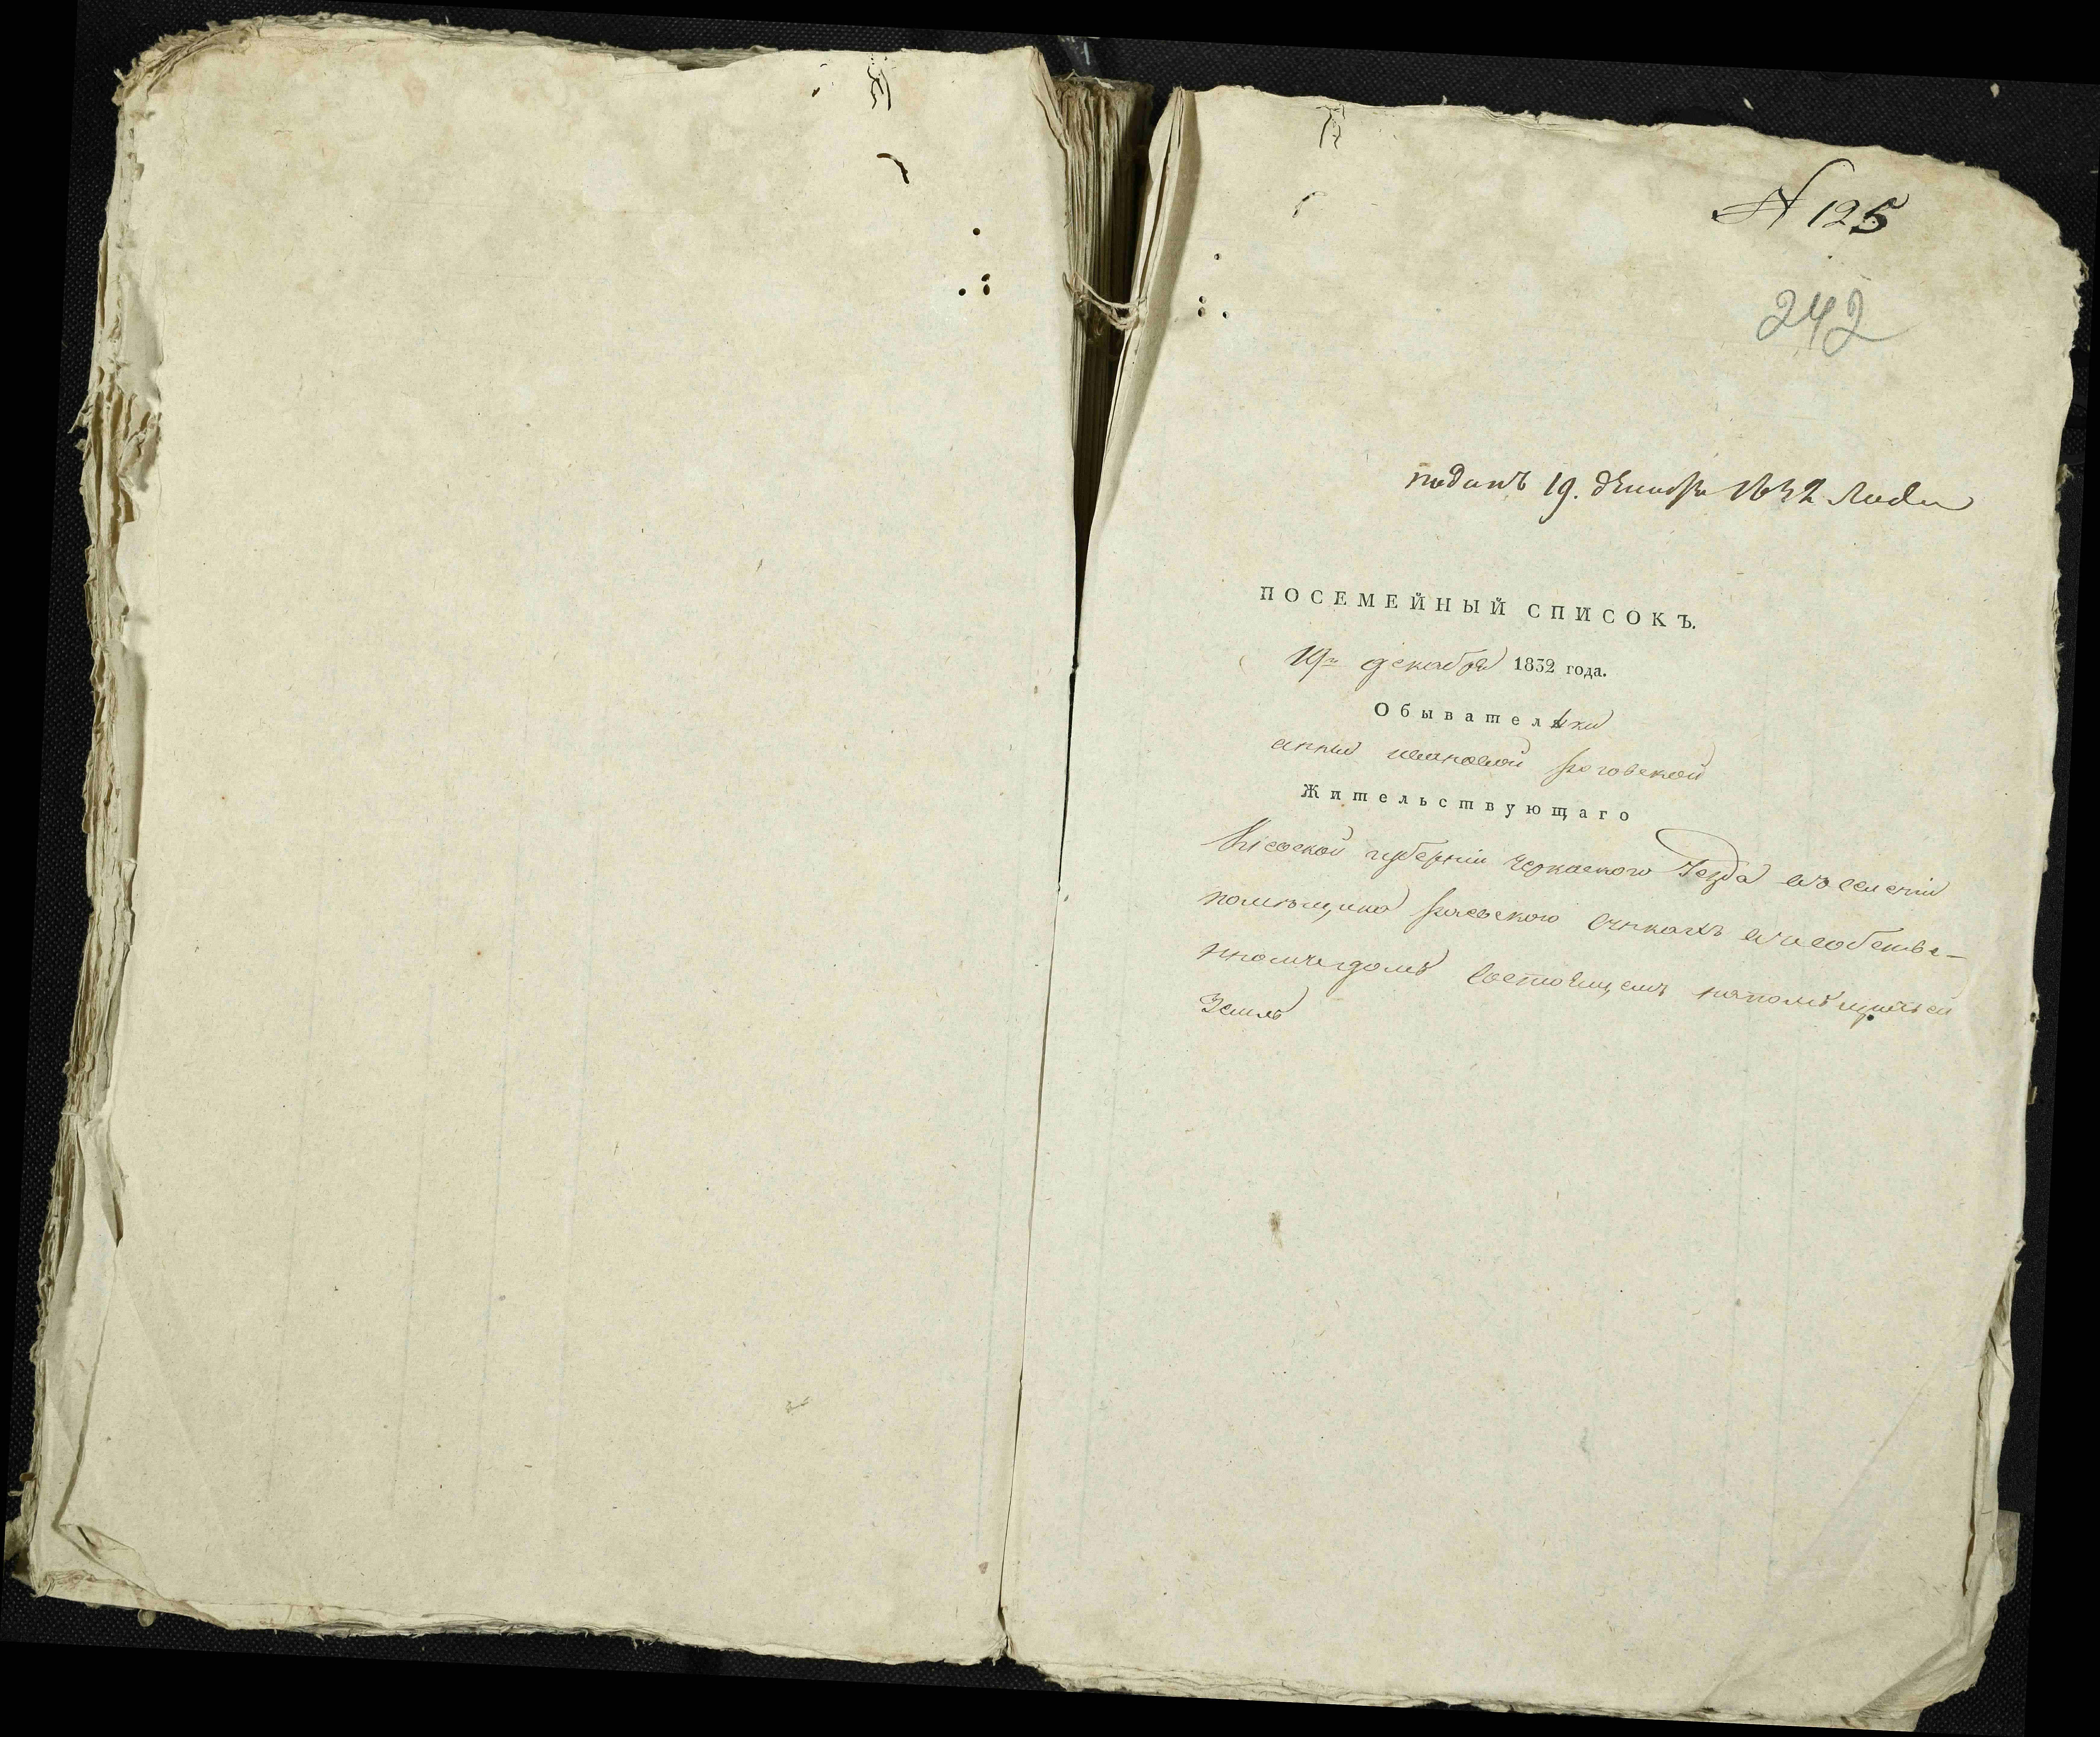 N 125
242
поданъ 19. декабря 1832 года
ПОСЕМЕЙНЫЙ СПИСОКЪ.
19го декабря 1832 года.
Обывательки
анны ивановой роговской
Жительствующаго
Кіевской губерніи черкаского уезда въ селеніи
помѣщика раевского въ собстве-
нномъ домѣ состоящемъ на помѣщичьей
Земле